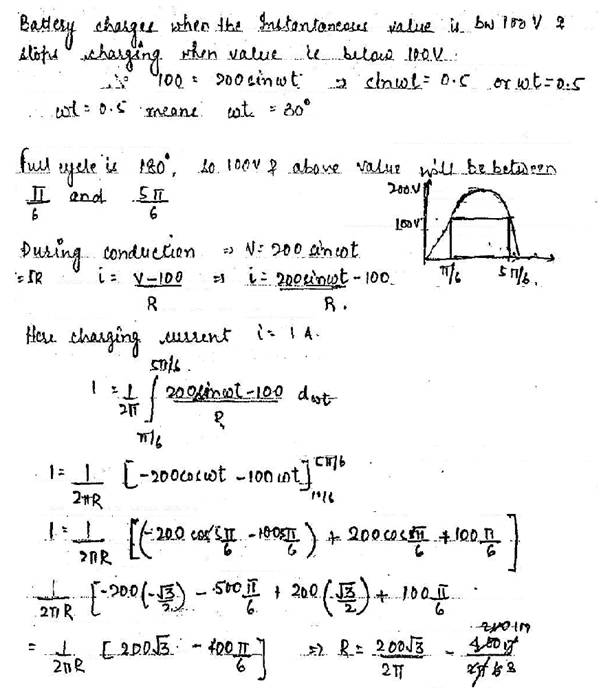 Battery charges when the Instantaneous value is bw 100V &
stops charging when value is below 100V.
∴ 100 = 200 sin ωt ⇒ sin ωt = 0.5 or ωt = 0.5
ωt = 0.5 means ωt = 30°
Full cycle is 180°, so 100V & above value will be between
π/6 and 5π/6
200V
100V
π/6 5π/6.
During conduction ⇒ V = 200 sin ωt
= IR i = (V-100)/R ⇒ i = (200 sin ωt - 100)/R.
Here charging current i = 1 A.
1 = 1/2π ∫_{π/6}^{5π/6} (200 sin ωt - 100)/R dωt
1 = 1/2πR [-200 cos ωt - 100 ωt]_{π/6}^{5π/6}
1 = 1/2πR [(-200 cos 5π/6 - 100 5π/6) + 200 cos π/6 + 100 π/6]
1/2πR [-200(-√3/2) - 500 π/6 + 200 (√3/2) + 100 π/6
= 1/2πR [200√3 - 400 π/6] ⇒ R = 200√3/2π -